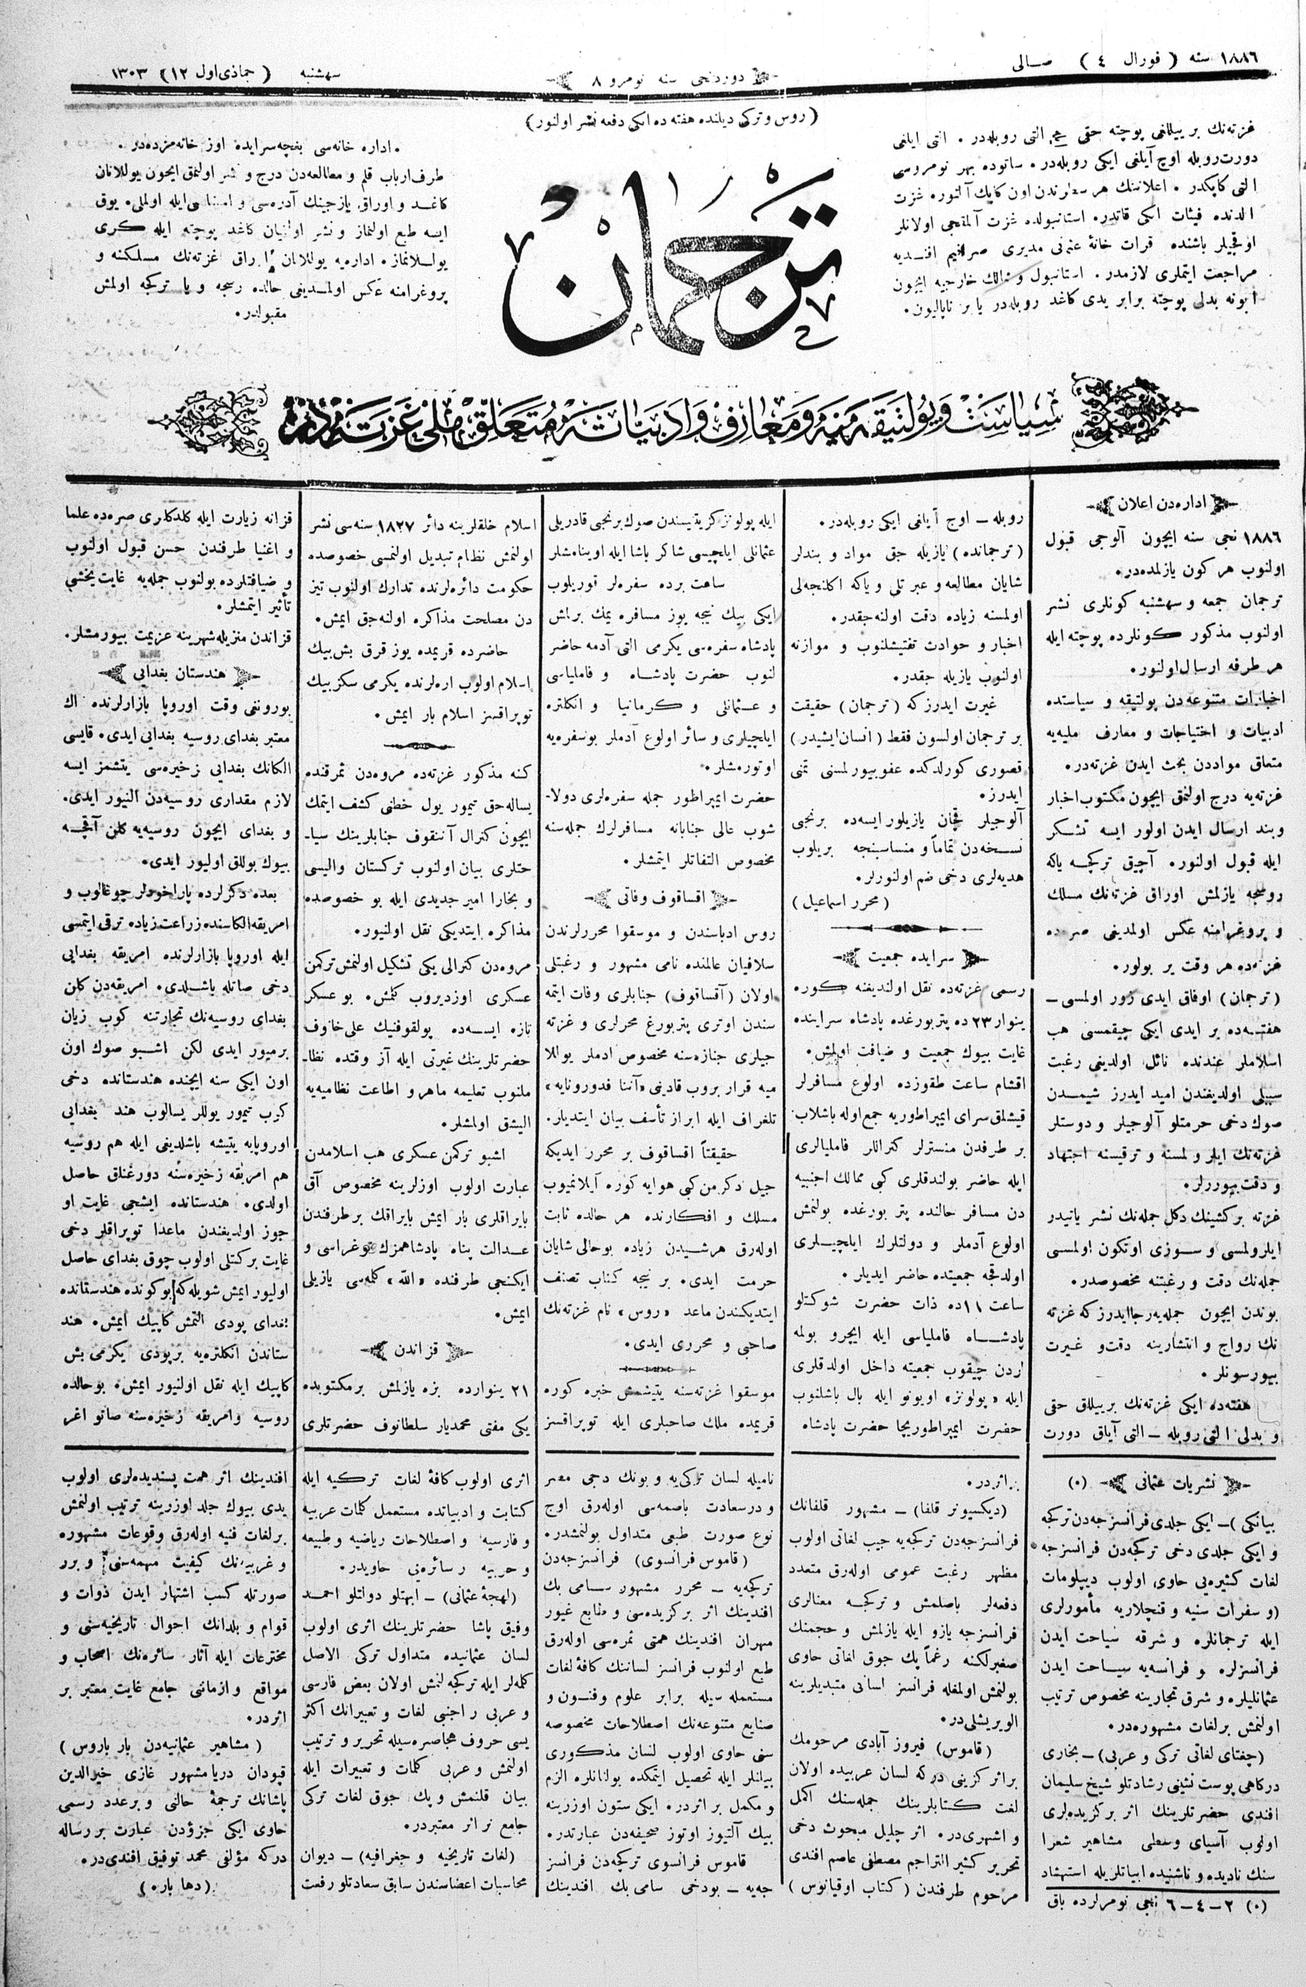 ١٨٨٦ سنه ( فورال ٤ ) صالی
دوردنجی سنه نومرو ٨
سهشنبه ( جماذی اول ١٢) ١٣٠٣
(روس و ترکی دیلنده هفته ده ایکی دفعه نشر اولنور)
غزته‌نك بر ییللغی پوچته حقی التی روبله‌در . التی ایلغی
دورت روبله اوچ آیلغی ایکی روبله‌در. ساتوده بهر نومروسی
التی کاپکدر .
. اداره خانه‌سی بغچه‌سرایده اوز خانه‌مزده‌در .
مقبولدر.
ترجمان
سیاست و پولتیقه و معارف و ادبیاته متعلق ملی غزته‌در
اداره‌دن اعلان
١٨٨٦ نجی سنه ایچون آلوجی قبول
اولنوب هر کون یازلمده‌در.
ترجمان جمعه و سهشنبه کونلری نشر
اولنوب مذکور کونلرده پوچته ایله
هر طرفه ارسال اولنور.
اخبارات متنوعه‌دن پولتیقه و سیاستده
ادبیات و احتیاجات و معارف ملیه‌یه
متعلق مواددن بحث ایدن غزته‌در.
غزته‌یه درج اولنمق ایچون مکتوب اخبار
وبند ارسال ایدن اولور ایسه تشکر
ایله قبول اولنور. آچیق ترکچه یاکه
روسجه یازلمش اوراق غزته‌نك مسلك
و پروغرامنه عکس اولمدیغی صرده
غزته‌ده هر وقت یر بولور.
(ترجمان) اوفاق ایدی زور اولمسی ــ
هفته‌ده بر ایدی ایکی چیقمسی هب
اسلاملر عندنده نائل اولدیغی رغبت
سببلی اولدیغندن امید ایدرز شیمدن
صوك دخی حرمتلو آلوجیلر و دوستلر
غزته‌نك ایلرولمسنه و ترقیسنه اجتهاد
و دقت بیوررلر.
غزته بر کشینك دکل جمله‌نك نشر یاتیدر
ایلرولمسی و سوزی اوتکون اولمسی
جمله‌نك دقت و رغبتنه مخصوصدر.
بوندن ایچون جمله‌یه رجا ایدرز که غزته
نك رواج و انتشارینه دقت و غیرت
بیورسونلر.
هفته‌ده ایکی غزته‌نك بر ییللق حقی
و بدلی التی روبله ــ التی آیلق دورت
روبله ــ اوچ آیلغی ایکی روبله‌در.
(ترجمانده) یازیله جق مواد و بندلر
شایان مطالعه و عبرتلی و یاکه اکلنجه‌لی
اولمسنه زیاده دقت اولنه‌جقدر.
اخبار و حوادث تفتیشلنوب و موازنه
اولنوب یازیله جقدر.
غیرت ایدرز که (ترجمان) حقیقت
بر ترجمان اولسون فقط (انسان ایشیدر)
قصوری کورلدکده عفو بیورلمسنی تمنی
ایدرز.
آلوجیلر قچان یازیلور ایسه‌ده برنجی
نسخه‌دن تماماً و منساسبنجه بریلوب
هدیه‌لری دخی ضم اولنورلر.
(محرر اسماعیل)
سرایده جمعیت
رسمی غزته‌ده نقل اولندیغنه کوره
ینوار ٢٣ ده پتربورغده پادشاه سراینده
غایت بیوك جمعیت و ضیافت اولمش.
اقشام ساعت طقوزده اولوغ مسافرلر
قیشلق سرای ایمپراطوریه جمع اوله باشلاب
بر طرفدن منسترلر کنراللر فامیالری
ایله حاضر بولندقلری کبی ممالك اجنبیه
دن مسافر حالنده پتر بورغده بولنمش
اولوغ آدملر و دولتلرك ایلچیلری
اولدقجه جمعیتده حاضر ایدیلر.
ساعت ١١ ده ذات حضرت شوکتلو
پادشاه فامیلیاسی ایله ایچرو بولمه
لردن چیقوب جمعیته داخل اولدقلری
ایله «پولونز» اویونو ایله بال باشلنوب
حضرت ایمپراطوریچا حضرت پادشاه
ایله پولونز کزیه‌سندن صوك برنجی قادریلی
عثمانلی ایلچیسی شاکر پاشا ایله اوینامشلر
ساعت برده سفره‌لر قوریلوب
ایکی بیك نیجه یوز مسافره یمك برلمش
پادشاه سفره‌سی یکرمی التی آدمه حاضر
لنوب حضرت پادشاه و فامیلیاسی
و عثمانلی و کرمانیا و انکلتره
ایلچیلری و سائر اولوغ آدملر بو سفره‌یه
اوتورمشلر.
حضرت ایمپراطور جمله سفره‌لری دولا
شوب عالی جنابانه مسافرلرك جمله‌سنه
مخصوص التفاتلر ایتمشلر.
اقساقوف وفاتی
روس ادباسندن و موسقوا محررلرندن
سلافیان عالمنده نامی مشهور و رغبتلی
اولان (آقساقوف) جنابلری وفات ایتمه
سندن اوتری پتربورغ محرلری و غزته
جیلری جنازه‌سنه مخصوص ادملر یوللا
میه قرار بروب قادینی «آننا فدورونایه»
تلغراف ایله ابراز تأسف بیان ایتدیلر.
حقیقتاً اقساقوف بر محرر ایدیکه
جیل دکرمن کبی هوایه کوره آیلانمیوب
مسلك و افکارنده هر حالده ثابت
اوله‌رق هر شیدن زیاده بو حالی شایان
حرمت ایدی. بر نیجه کتاب تصنف
ایتدیکندن ماعد «روس» نام غزته‌نك
صاحبی و محرری ایدی.
موسقوا غزته‌سنه یتیشمش خبره کوره
قریمده ملك صاحبلری ایله توپراقسز
اسلام خلقلرینه دائر ١٨٢٧ سنه‌سی نشر
اولنمش نظام تبدیل اولنمسی خصوصده
حکومت دائره‌لرنده تدارك اولنوب تیز
دن مصلحت مذاکره اولنه‌جق ایمش.
حاضرده قریمده یوز قرق بش بیك
اسلام اولوب اره‌لرنده یکرمی سکز بیك
توپراقسز اسلام بار ایمش.
کنه مذکور غزته‌ده مروه‌دن ثمرقنده
یساله‌جق تیمور یول خطنی کشف ایتمك
ایچون کنرال آننقوف جنابلرینك سیا
حتلری بیان اولنوب ترکستان والیسی
و بخارا امیر جدیدی ایله بو خصوصده
مذاکره ایتدیکی نقل اولنیور.
مروه‌دن کنرالی یکی تشکیل اولنمش ترکمن
عسکری اوزدیروب کتمش. بو عسکر
تازه ایسه‌ده پولقوفنیك علی خانوف
حضرتلرینك غیرتی ایله آز وقتده نظا
ملنوب تعلیمه ماهر و اطاعت نظامیه‌یه
الیشق اولمشلر.
اشبو ترکمن عسکری هب اسلامدن
عبارت اولوب اوزلرینه مخصوص آق
بایراقلری بار ایمش بایراقك بر طرفندن
عدالت پناه پادشاهمزك توغراسی و
ایکنجی طرفنده «الله» کلمه‌سی یازیلی
ایمش.
قزاندن
٢١ ینوارده بزه یازلمش بر مکتوبده
یکی مفتی محمدیار سلطانوف حضرتلری
قزانه زیارت ایله کلدکلری صره‌ده علما
و اغنیا طرفندن حسن قبول اولنوب
و ضیافتلرده بولنوب جمله‌یه غایت یخشی
تأثیر ایتمشلر.
قزاندن منزیله شهرینه عزیمت بیورمشلر.
هندستان بغدایی
بورونغی وقت اوروپا بازارلرنده اك
معتبر بغدای روسیه بغدایی ایدی. قایسی
الکانك بغدایی زخیره‌سی یتشمز ایسه
لازم مقداری روسیه‌دن النیور ایدی.
و بغدای ایچون روسیه‌یه کلن آقچه
بیوك بوللق اولیور ایدی.
بعده دکزلرده پاراخودلر چوغالوب و
امریقه الکاسنده زراعت زیاده ترقی ایتمسی
ایله اوروپا بازارلرنده امریقه بغدایی
دخی صاتله باشلدی. امریقه‌دن کلن
بغدای روسیه‌نك تجارتنه کوب زیان
برمیور ایدی لکن اشبو صوك اون
اون ایکی سنه ایچنده هندستانده دخی
کوب تیمور یوللر یسالوب هند بغدایی
اوروپایه یتیشه باشلدیغی ایله هم روسیه
هم امریقه زخیره‌سنه دورغنلق حاصل
اولدی. هندستانده ایشچی غایت او
جوز اولدیغندن ماعدا توپراقلر دخی
غایت برکتلی اولوب چوق بغدای حاصل
اولیور ایمش شویله‌که بوکونده هندستانده
بغدای پودی التمش کاپیك ایمش. هند
ستاندن انکلتره‌یه بر پودی یکرمی بش
کاپیك ایله نقل اولنیور ایمش. بو حالده
روسیه و امریقه زخیره‌سنه صاتو اغر
نشریات عثمانی (٠)
بیانکی) ــ ایکی جلدی فرانسزجه‌دن ترکجه
و ایکی جلدی دخی ترکجه‌دن فرانسزجه
لغات کثیره‌یی حاوی اولوب دیپلومات
(و سفرات سنیه و قنچلاریه مأمورلری
ایله ترجمانلره و شرقه سیاحت ایدن
فرانسزلره و فرانسه‌یه سیاحت ایدن
عثمانلیلره و شرق تجارینه مخصوص ترتیب
اولنمش بر لغات مشهوره‌در.
(چغتای لغاتی ترکی و عربی) ــ بخاری
درکاهی پوست نشینی رشادتلو شیخ سلیمان
افندی حضرتلرینك اثر برکزیده‌لری
اولوب آسیای وسطی مشاهیر شعرا
سنك نادیده و ناشنیده ابیاتلریله استهشاد
(٠) ٢ ــ ٤ ــ ٦ نجی نومرلرده باق
براثردر.
(دیکسیونر قلفا) ــ مشهور قلفانك
فرانسزجه‌دن ترکجه‌یه جیب لغاتی اولوب
مظهر رغبت عمومی اوله‌رق متعدد
دفعه‌لر باصلمش و ترکجه معنالری
فرانسزجه یازو ایله یازلمش و حجمنك
صغیرلکنه رغماً پك جوق لغاتی حاوی
بولنمش اولمغله فرانسز لسانی متبدیلرینه
الویریشلی‌در.
(قاموس) فیروز آبادی مرحومك
براثر کزینی درکه لسان عربیده اولان
لغت کتابلرینك جمله‌سنك اکمل
و اشهری‌در. اثر جلیل مبحوث دخی
تحریر کثیر التراجم مصطفی عاصم افندی
مرحوم طرفندن (کتاب اوقیانوس)
نامیله لسان ترکی‌یه و بونك دجی مصر
و درسعادت باصمه‌سی اوله‌رق اوج
نوع صورت طبعی متداول بولنمشدر.
(قاموس فرانسوی) فرانسزجه‌دن
ترکجه‌یه ــ محرر مشهور سامی بك
افندینك اثر برکزیده‌سی و طابع غیور
مهران افندینك همتی ثمره‌سی اوله‌رق
طبع اولنوب فرانسز لساننك کافهٔ لغات
مستعمله سیله برابر علوم و فنون و
صنایع متنوعه‌نك اصطلاحات مخصوصه
سنی حاوی اولوب لسان مذکوری
بیانلر ایله تحصیل ایتمکده بولنانلره الزم
و مکمل بر اثردر. ایکی ستون اوزرینه
بیك آلتیوز اوتوز صحیفه‌دن عبارتدر.
قاموس فرانسوی ترکجه‌دن فرانسز
جه‌یه ــ بودخی سامی بك افندینك
اثری اولوب کافهٔ لغات ترکیه ایله
کتابت و ادبیاتده مستعمل کلمات عربیه
و فارسیه و اصطلاحات ریاضیه و طبیعه
و حربیه و سائره‌یی حاویدر.
(لهجهٔ عثمانی) ــ ابهتلو دولتلو احمد
وفیق پاشا حضرتلرینك اثری اولوب
لسان عثمانیده متداول ترکی الاصل
کلمه‌لر ایله ترکجه‌لنمش اولان بعض فارسی
و عربی و اجنبی لغات و تعبیراتك اکثر
یسی حروف هجا صره‌سیله تحریر و ترتیب
اولنمش و عربی کلمات و تعبیرات ایله
بیان قلنمش و پك جوق لغات ترکی
جامع بر اثر معتبردر.
(لغات تاریخیه و جغرافیه) ــ دیوان
محاسبات اعضاسندن سابق سعادتلو رفعت
افندینك اثر همت پسندیده‌لری اولوب
یدی بیوك جلد اوزرینه ترتیب اولنمش
بر لغات فنیه اوله‌رق وقوعات مشهوره
و غریبه‌نك کیفیت مهمه‌سنی و برر
صورتله کسب اشتهار ایدن ذوات و
اقوام و بلدانك احوال تاریخیه‌سنی و
مخترعات ایله آثار سائره‌نك اصحاب و
مواقع و ازماننی جامع غایت معتبر بر
اثردر.
(مشاهیر عثمانیه‌دن بار باروس)
قپودان دریا مشهور غازی خیرالدین
پاشانك ترجمهٔ حالنی و بر عدد رسمی
حاوی ایکی جزؤدن عبارت بر رساله
درکه مؤلفی محمد توفیق افندی‌در.
(دها بار.)